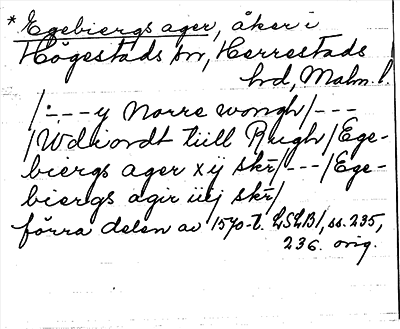 * Egebiergs ager, åker i
Högestads sn, Herrestads
hd, Malm. l.
/-.-- y Norre wongh/---
/Wdi ordt tiill Rugh/Ege-
biergs ager xij skr/---/Ege-
biergs agir iiij skr/
förra delen av 1570-t. LSLB1, ss. 235,
236. orig.